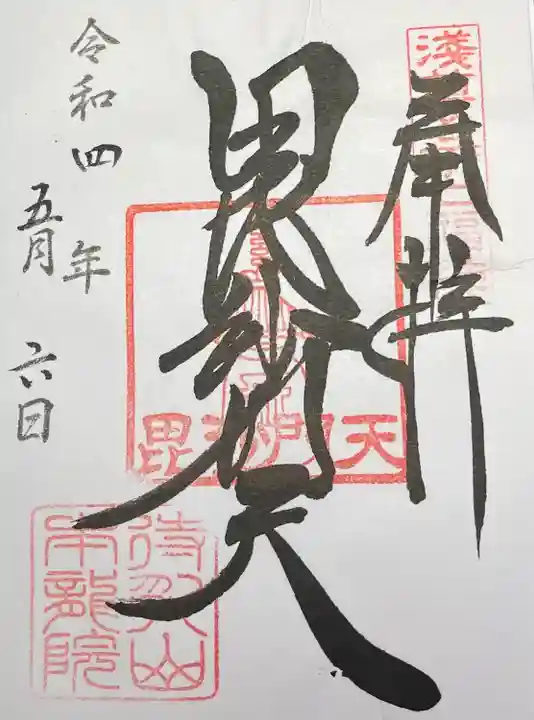 奉拝
毘沙門天
令和四年
五月六日
天門沙毘
待乳山
本龍院